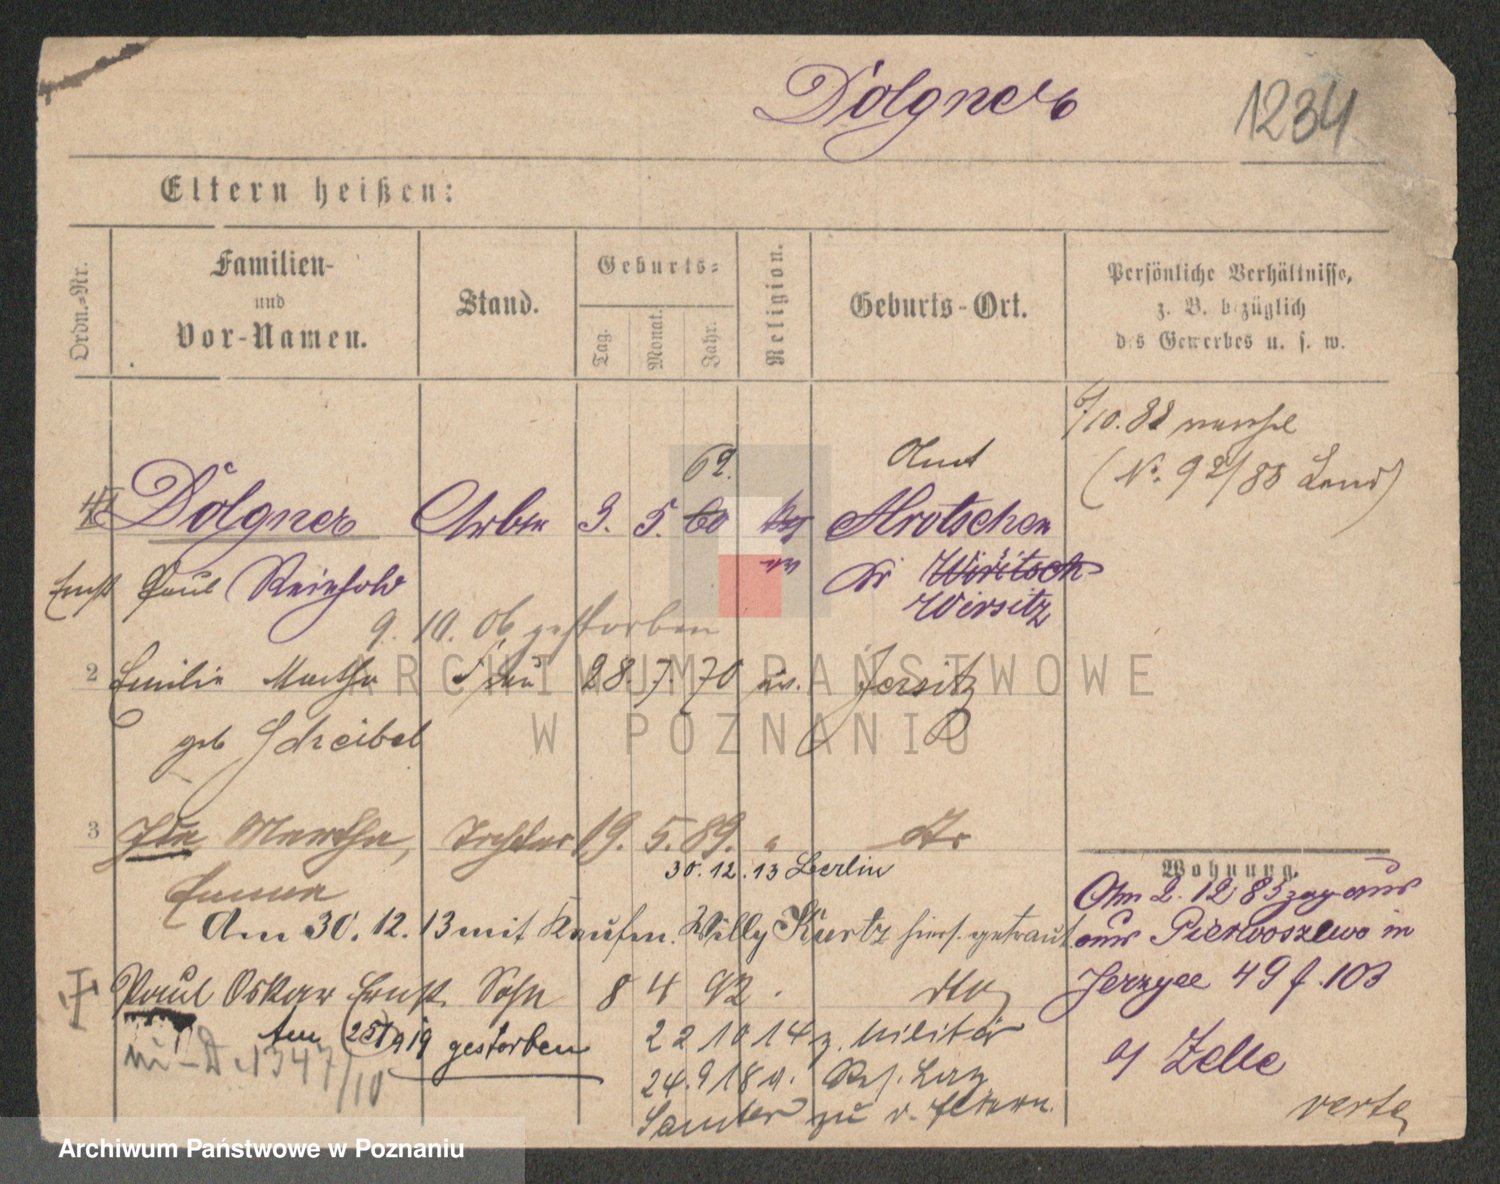 Dolgner
1234
Eltern heißen:
Ordn.-Nr.
Familien-
und
Vor-Namen.
Stand.
Geburts-
Tag.
Monat.
Jahr.
Religion.
Geburts-Ort.
Persönliche Verhältnisse,
z. B. bezüglich
des Gewerbes u. s. w.
(N. 92/88 Land)
62.
Amt
Dolgner Arbtr 3. 5. 60 Mrotschen
Ernst Paul Reinhold Kr Wiritsch
Wirsitz
9. 10. 06 gestorben
2 Emilie Martha Frau 28. 7. 70 ev. Jersitz
geb Schreibel
3 Ida Martha, Tochter 19. 5. 89. "
Emma
30.12.13 Berlin
Am 30.12.13 mit Kaufm. Willy Kurtz hiers. getraut
Paul Oskar Ernst Sohn 8 4 92 . dto
Am 25 19 gestorben
1347/10
22 10 14 z. Militär
24.9 18 v. Res. Laz
Samter zu d. Eltern.
Wohnung.
Am 2. 12 85 zog aus
aus Pierwoszewo in
Jerzyce 49 f. 103
a/ Zelle
verte
ARCHIWUM PAŃSTWOWE
W POZNANIU
Archiwum Państwowe w Poznaniu